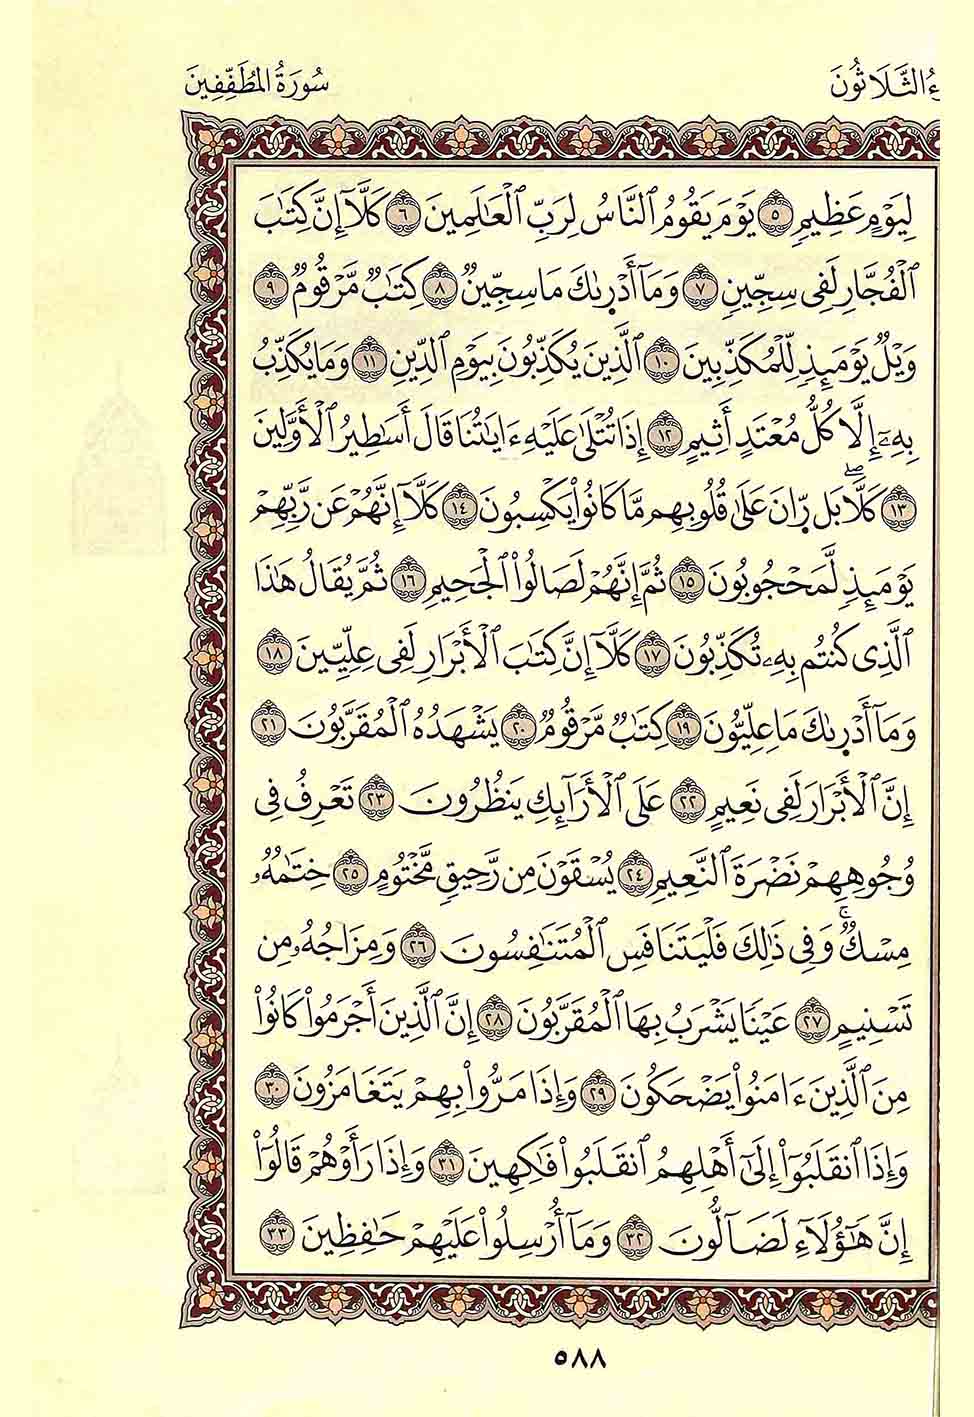 ءُ الثَّلَاثُونَ
سُورَةُ المُطَفِّفِينَ
لِيَوْمٍ عَظِيمٍ ٥ يَوْمَ يَقُومُ ٱلنَّاسُ لِرَبِّ ٱلْعَٰلَمِينَ ٦ كَلَّآ إِنَّ كِتَٰبَ
ٱلْفُجَّارِ لَفِى سِجِّينٍ ٧ وَمَآ أَدْرَىٰكَ مَا سِجِّينٌ ٨ كِتَٰبٌ مَّرْقُومٌ ٩
وَيْلٌ يَوْمَئِذٍ لِّلْمُكَذِّبِينَ ١٠ ٱلَّذِينَ يُكَذِّبُونَ بِيَوْمِ ٱلدِّينِ ١١ وَمَا يُكَذِّبُ
بِهِۦٓ إِلَّا كُلُّ مُعْتَدٍ أَثِيمٍ ١٢ إِذَا تُتْلَىٰ عَلَيْهِ ءَايَٰتُنَا قَالَ أَسَٰطِيرُ ٱلْأَوَّلِينَ
١٣ كَلَّاۖ بَلْ رَانَ عَلَىٰ قُلُوبِهِم مَّا كَانُوا۟ يَكْسِبُونَ ١٤ كَلَّآ إِنَّهُمْ عَن رَّبِّهِمْ
يَوْمَئِذٍ لَّمَحْجُوبُونَ ١٥ ثُمَّ إِنَّهُمْ لَصَالُوا۟ ٱلْجَحِيمِ ١٦ ثُمَّ يُقَالُ هَٰذَا
ٱلَّذِى كُنتُم بِهِۦ تُكَذِّبُونَ ١٧ كَلَّآ إِنَّ كِتَٰبَ ٱلْأَبْرَارِ لَفِى عِلِّيِّينَ ١٨
وَمَآ أَدْرَىٰكَ مَا عِلِّيُّونَ ١٩ كِتَٰبٌ مَّرْقُومٌ ٢٠ يَشْهَدُهُ ٱلْمُقَرَّبُونَ ٢١
إِنَّ ٱلْأَبْرَارَ لَفِى نَعِيمٍ ٢٢ عَلَى ٱلْأَرَآئِكِ يَنظُرُونَ ٢٣ تَعْرِفُ فِى
وُجُوهِهِمْ نَضْرَةَ ٱلنَّعِيمِ ٢٤ يُسْقَوْنَ مِن رَّحِيقٍ مَّخْتُومٍ ٢٥ خِتَٰمُهُۥ
مِسْكٌۚ وَفِى ذَٰلِكَ فَلْيَتَنَافَسِ ٱلْمُتَنَٰفِسُونَ ٢٦ وَمِزَاجُهُۥ مِن
تَسْنِيمٍ ٢٧ عَيْنًا يَشْرَبُ بِهَا ٱلْمُقَرَّبُونَ ٢٨ إِنَّ ٱلَّذِينَ أَجْرَمُوا۟ كَانُوا۟
مِنَ ٱلَّذِينَ ءَامَنُوا۟ يَضْحَكُونَ ٢٩ وَإِذَا مَرُّوا۟ بِهِمْ يَتَغَامَزُونَ ٣٠
وَإِذَا ٱنقَلَبُوٓا۟ إِلَىٰٓ أَهْلِهِمُ ٱنقَلَبُوا۟ فَٰكِهِينَ ٣١ وَإِذَا رَأَوْهُمْ قَالُوٓا۟
إِنَّ هَٰٓؤُلَآءِ لَضَآلُّونَ ٣٢ وَمَآ أُرْسِلُوا۟ عَلَيْهِمْ حَٰفِظِينَ ٣٣
٥٨٨